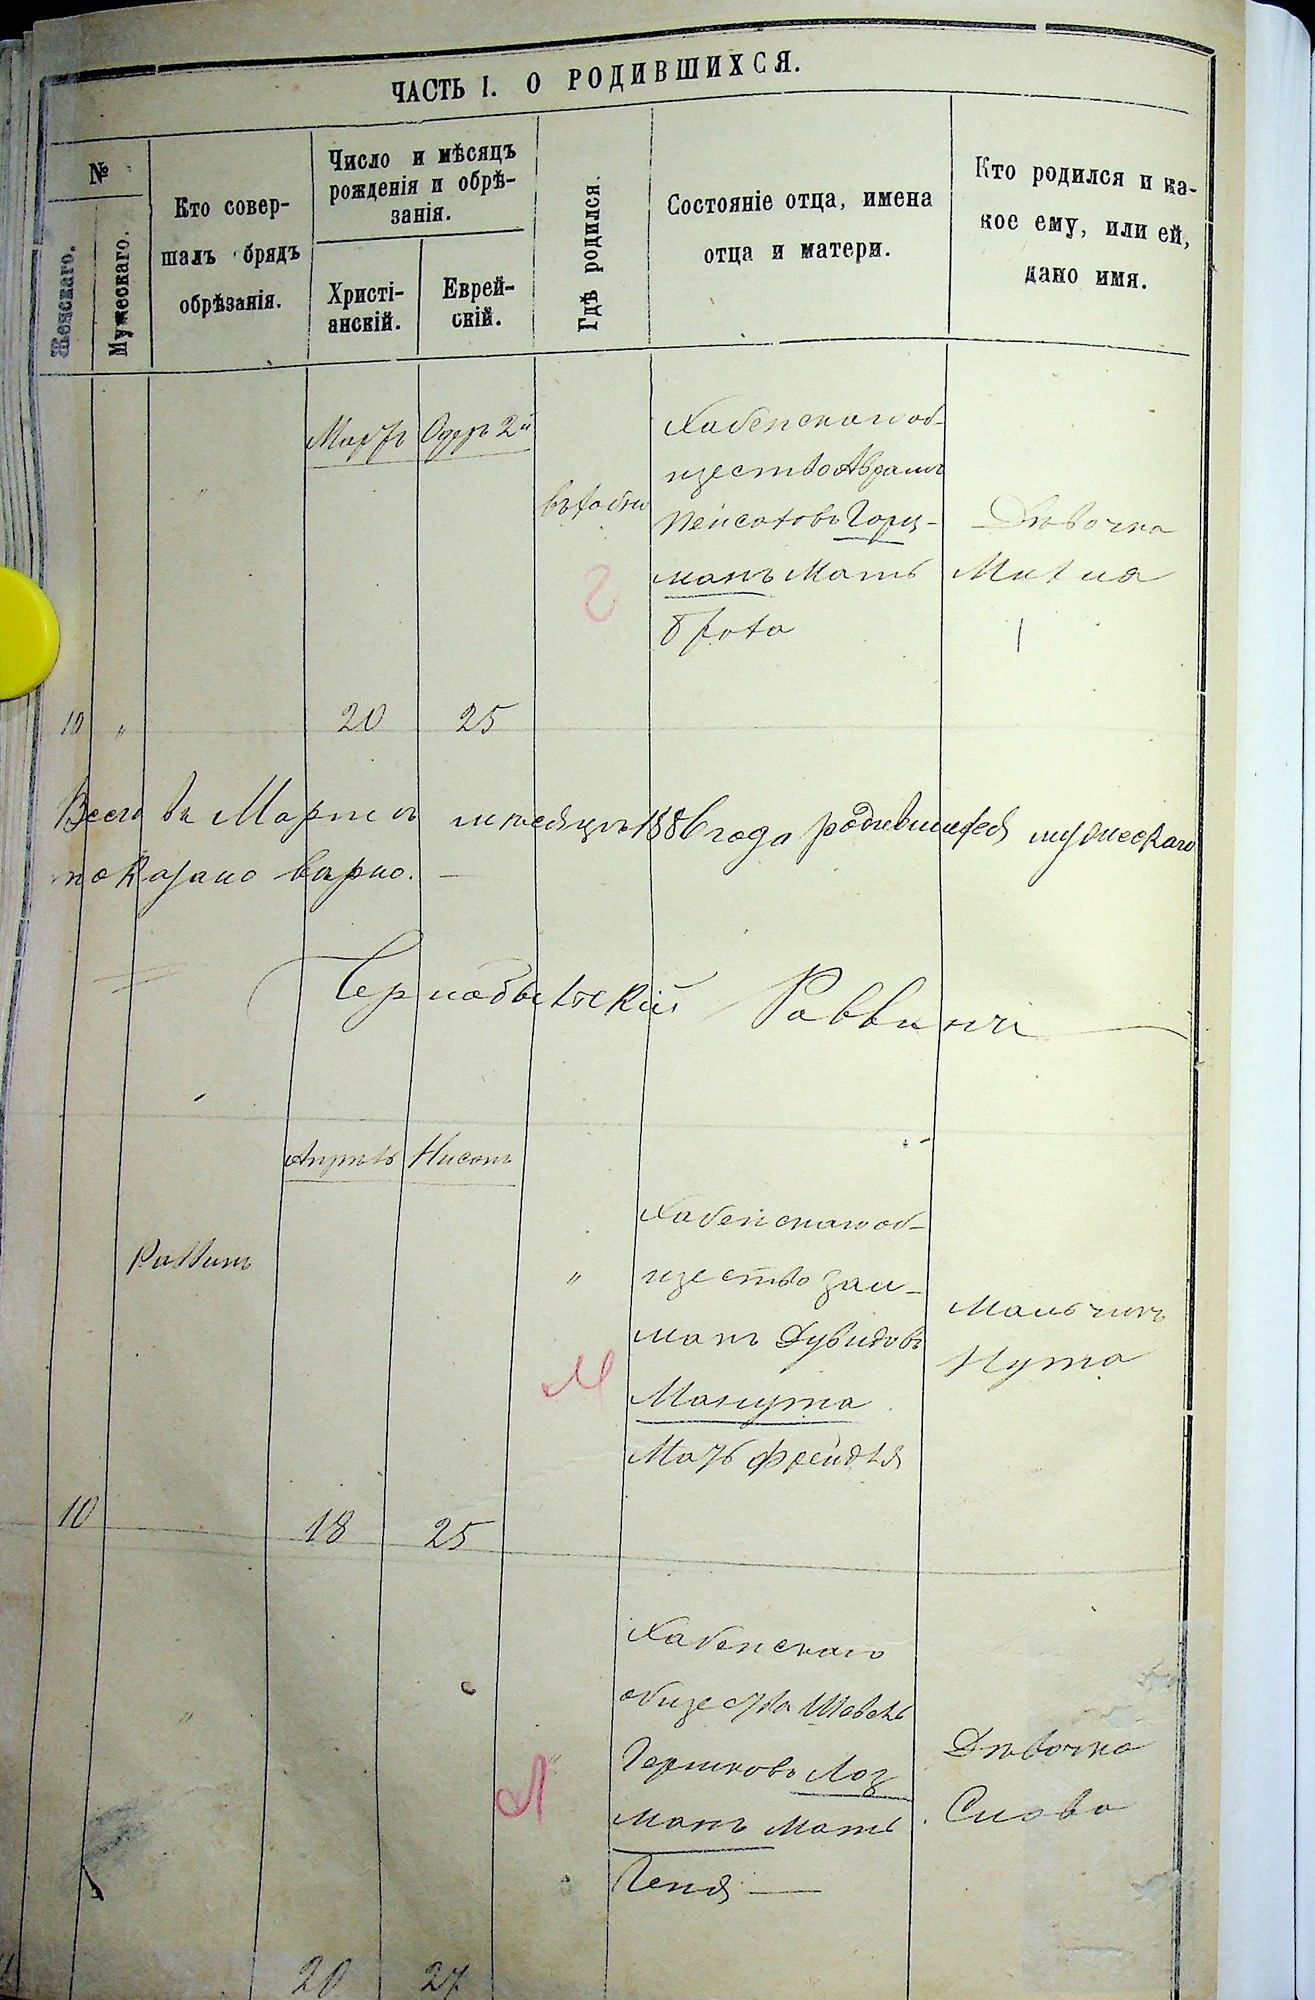 ЧАСТЬ I. О РОДИВШИХСЯ.
№
Женскаго.
Мужескаго.
Кто совер-
шалъ обрядъ
обрѣзанія.
Число и мѣсяцъ
рожденія и обрѣ-
занія.
Христі-
анскій.
Еврей-
скій.
Гдѣ родился.
Состояніе отца, имена
отца и матери.
Кто родился и ка-
кое ему, или ей,
дано имя.
Мартъ Одеръ 2й
Хабенскаго об-
щество Аврамъ
Пейсаховъ Горц-
манъ Мать
Фрота
Дѣвочка
Михля
10 " 20 25
Всего въ Мартѣ мѣсяцѣ 1886 года родившихся мужескаго
показано вѣрно.
Чернобыльскій Раввинъ
Апрѣль Нисонъ
Раввинъ
"
Хабенскаго об-
щество Зал-
манъ Дувидовъ
Манута
Мать Фрейдля
Мальчикъ
Нута
10 18 25
"
Хабенскаго
общества Шовель
Гершковъ Лоз
манъ мать
Геня
Дѣвочка
Слова
20 27